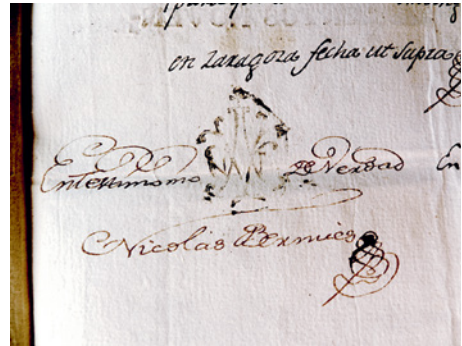 en Zaragoza fecha ut supra
En testimonio de Verdad En
Nicolás Bermico